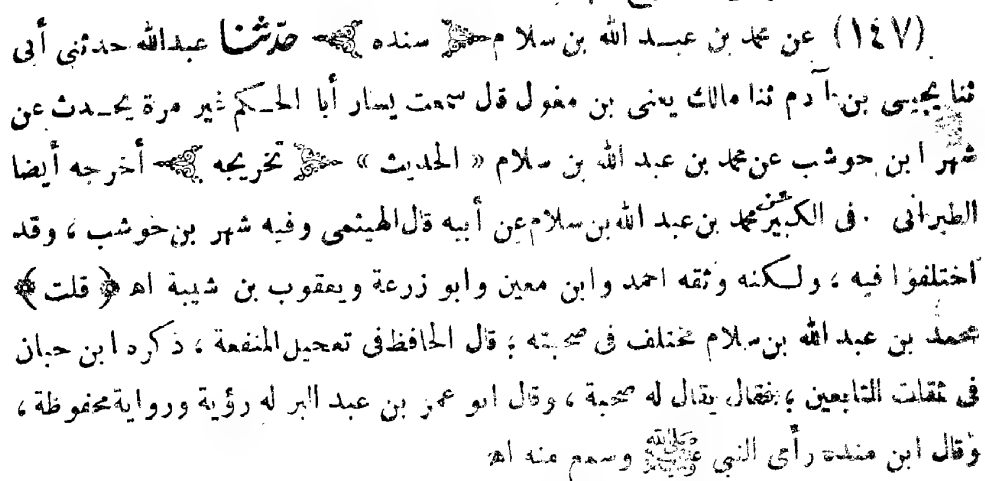 (١٤٧) عن محمد بن عبد الله بن سلام ﴿ سنده ﴾ حدثنا عبد الله حدثني أبى
ثنا يحيى بن آدم ثنا مالك يعنى بن مغول قل سمعت يسار أبا الحكم غير مرة يحدث عن
شهر ابن حوشب عن محمد بن عبد الله بن سلام « الحديث » ﴿ تخريجه ﴾ أخرجه أيضا
الطبرانى . فى الكبير عن محمد بن عبد الله بن سلام عن أبيه قال الهيثمى وفيه شهر بن حوشب ، وقد
اختلفوا فيه ، ولكنه وثقه احمد وابن معين وابو زرعة ويعقوب بن شيبة اه ﴿ قلت ﴾
محمد بن عبد الله بن سلام مختلف فى صحبته ؛ قال الحافظ فى تعجيل المنفعة ، ذكره ابن حبان
فى ثقات التابعين ؛ فقال يقال له صحبة ، وقال ابو عمر بن عبد البر له رؤية ورواية محفوظة ،
وقال ابن منده رأى النبي ﷺ وسمع منه اه